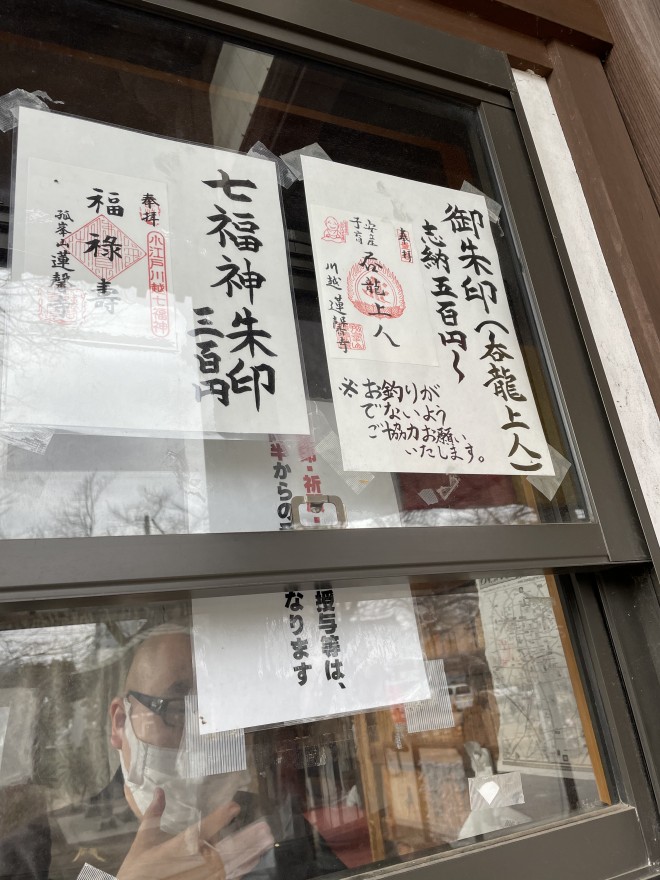 御朱印(呑龍上人)
志納五百円～
奉拝
安産
子育
呑龍上人
川越 蓮馨寺
※お釣りが
でないよう
ご協力お願い
いたします。
七福神朱印
三百円
奉拝
小江戸川越七福神
福禄壽
孤峯山
蓮馨寺
印・祈
半からの
授与等は、
なります